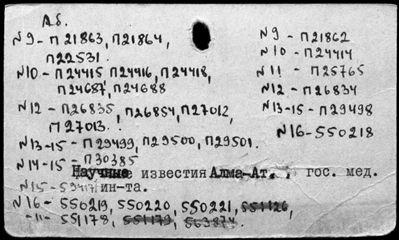 Аб.
№9 – П21863, П21864,
П22531.
№10 – П24415 П24416, П24418,
П24687, П24688
№12 – П26835, П26854, П27012,
П27013.
№13-15 – П29499, П29500, П29501.
№14-15 – П30385
Научные известия Алма-Ат. гос. мед.
ин-та.
№15-
№16 – 550219, 550220, 550221, 551126,
–"– 551178, 551179, 563874.
№9 – П21862
№10 – П24414
№11 – П25765
№12 – П26834
№13-15 – П29498
№16-550218